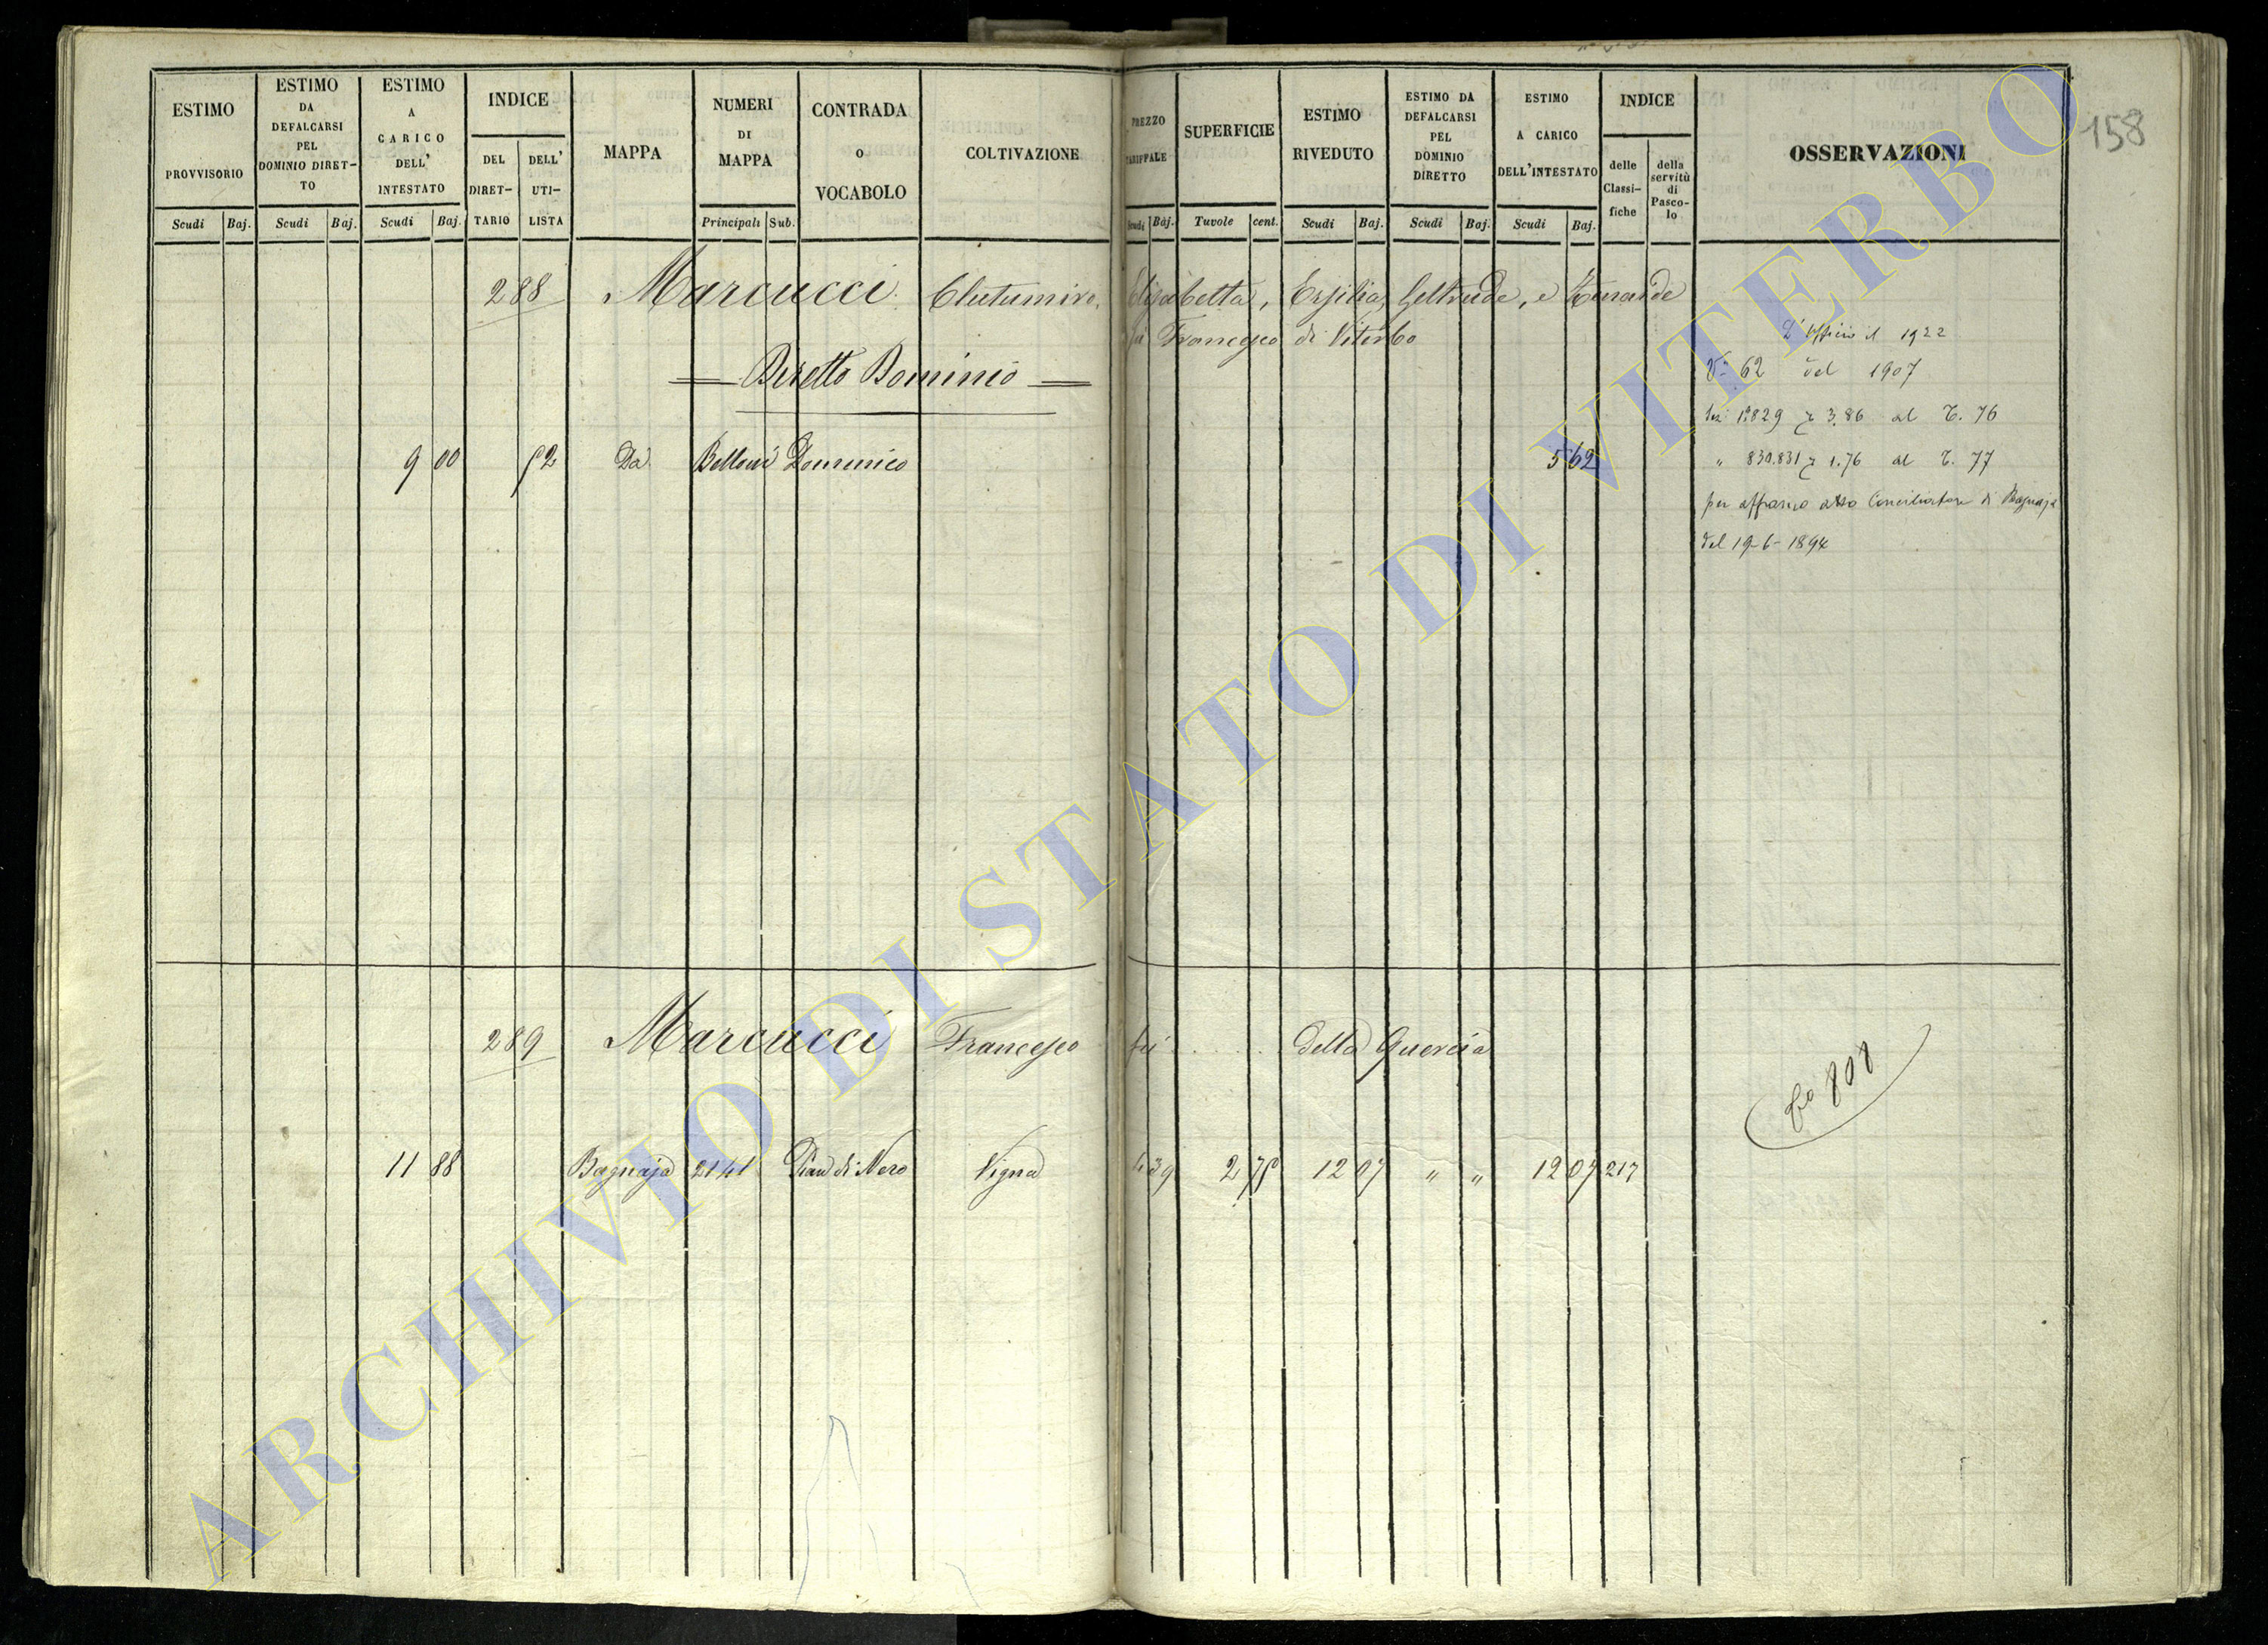 158
ESTIMO PROVVISORIO
Scudi Baj.
ESTIMO DA DEFALCARSI PEL DOMINIO DIRET-TO
Scudi Baj.
ESTIMO A CARICO DELL' INTESTATO
Scudi Baj.
INDICE
DEL DIRET-TARIO
DELL' UTI-LISTA
MAPPA
NUMERI DI MAPPA
Principali Sub.
CONTRADA O VOCABOLO
COLTIVAZIONE
PREZZO TARIFFALE
Scudi Baj.
SUPERFICIE
Tavole cent.
ESTIMO RIVEDUTO
Scudi Baj.
ESTIMO DA DEFALCARSI PEL DOMINIO DIRETTO
Scudi Baj.
ESTIMO A CARICO DELL'INTESTATO
Scudi Baj.
INDICE
delle Classi-fiche
della servitù di Pasco-lo
OSSERVAZIONI
288 Marcucci Elisabetta, Ersilia, Geltrude, e
fu Francesco di Viterbo
Diretto Dominio
9 00 52 Da Belloni Domenico 5 62
D'Ufficio il 1922
Va 62 del 1907
1°829 3.86 al T. 76
" 830.831 1.76 al T. 77
per affranco atto Conciliatore di Bagnaja
del 19-6-1894
289 Marcucci Francesco fu . . . . della Quercia
11 88 Bagnaja 2141 Pian di Nero Vigna 4 39 2 75 12 07 " " 12 07 217
ARCHIVIO DI STATO DI VITERBO